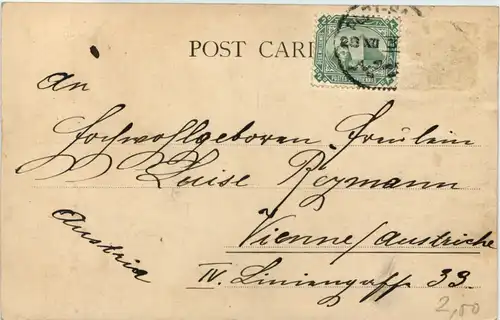 POST CARD
28 XII
An
Hochwohlgeboren Fräulein
Luise Rizmann
Vienne/Autriche
Austria
IV. Liniengasse 33.
2,50